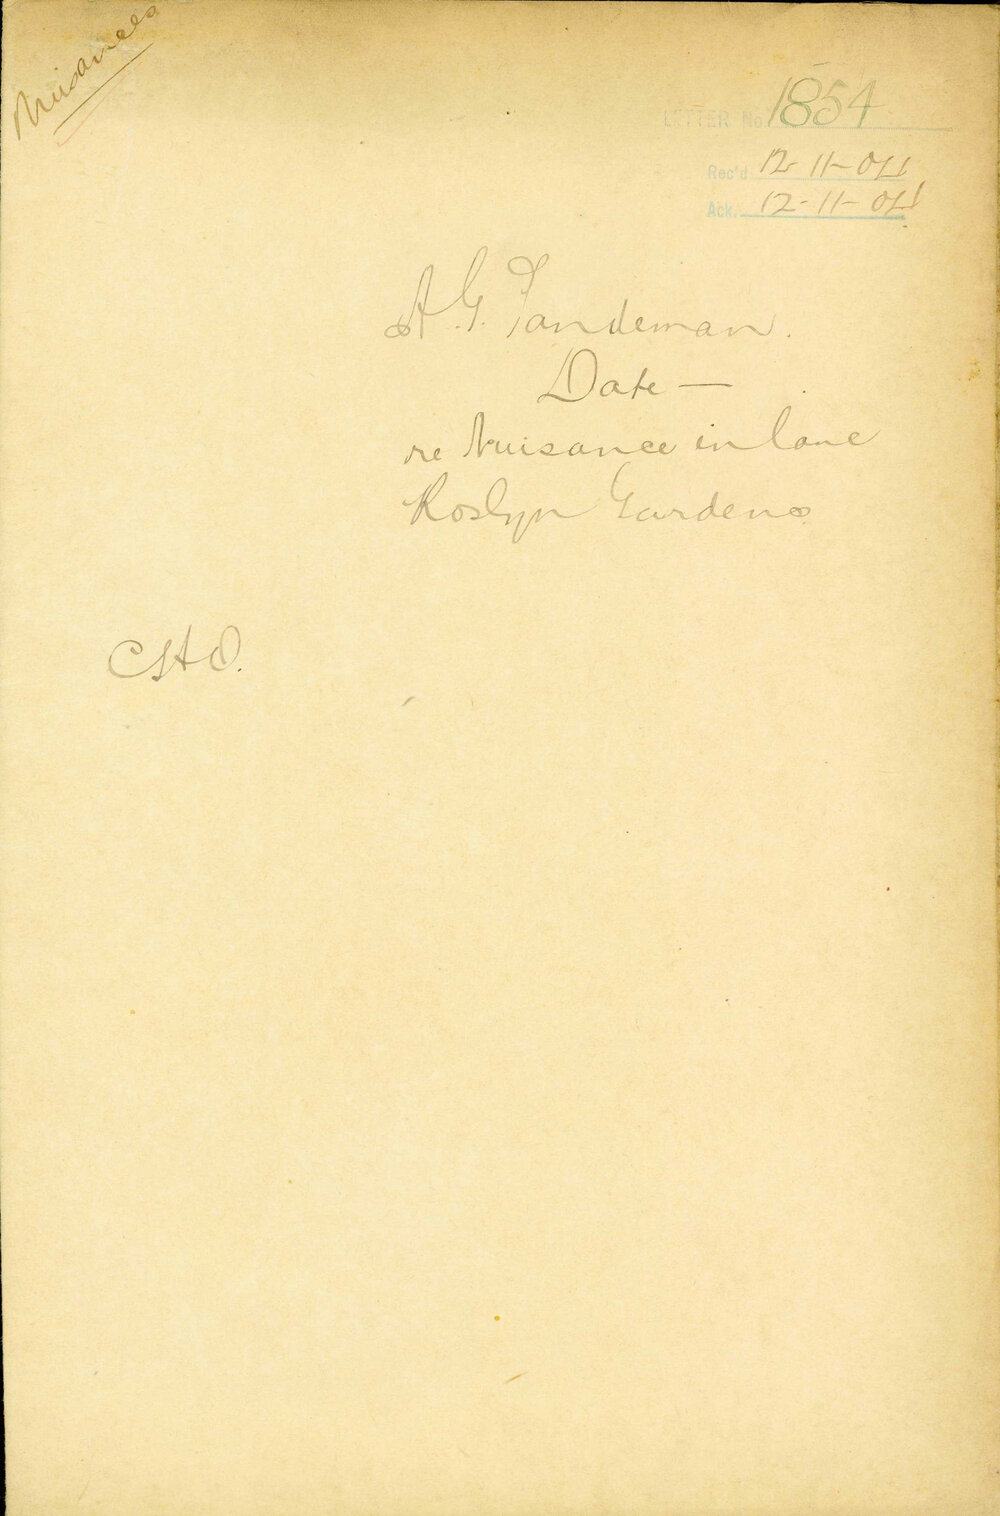 Nuisances
LETTER No. 1854
Rec'd 12-11-04
Ack. 12-11-04
A. G. Tandeman.
Date —
re Nuisance in lane
Roslyn Gardens
CSHO.